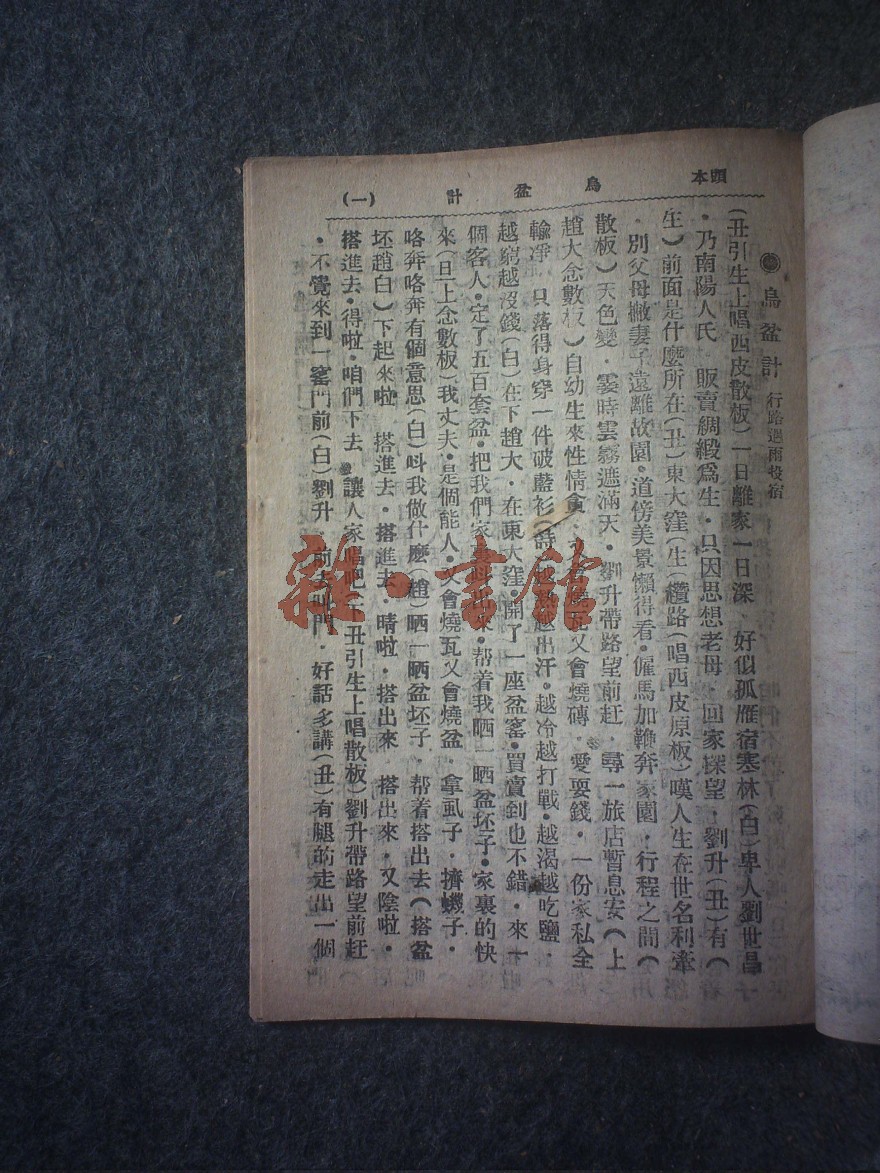 頭本 烏盆計 (一)
◉烏盆計 行路遇雨投宿
(丑引生上唱西皮散板)一日離家一日深．好似孤雁宿寒林(白)卑人劉世昌
．乃南陽人氏．販賣綢緞爲生．只因思想老母．回家探望．劉升(丑)有(
生)前面是什麽所在(丑)東大窪(生)儹路(唱西皮原板)嘆人生在世名利牽
．別父母撇妻子遠離故園．道傍美景懶得看．催馬加鞭奔家園．行程之間(
散板)天色變．霎時雲霧遮滿天．劉升帶路望前赶．尋一旅店暫息安(上
趙大念數板)自幼生來性情貪．又會燒瓦又會燒磚．愛耍錢．一份家私全
輸凈．只落得身穿一件破藍衫(詩)越熱越出汗．越冷越打戰．越渴越吃鹽．
越窮越沒錢(白)在下趙大．在東大窪．開了一座盆窰．買賣到也不錯．來一
個客人．定了五百套盆．把我們家裏叫出來．帮着我晒一晒盆坯子．家裏的快
來(旦上念數板)我丈夫．是個能人．又會燒瓦又會燒盆．拿虱子．擠蟣子．
咯奔咯奔有個意思(白)叫我做什麽(趙)晒一晒盆坯子．帮着搭出去(搭盆
坯趙白)下起來啦．搭進去．搭進去．晴啦．搭出來．搭出來．又陰啦．
搭進去．得啦．咱們下去．讓人家唱吧(丑引生上唱散板)劉升帶路望前赶
．不覺來到一窰門前(白)劉升．前去叫門．好話多講(丑)有腿的走出一個
雜·書館